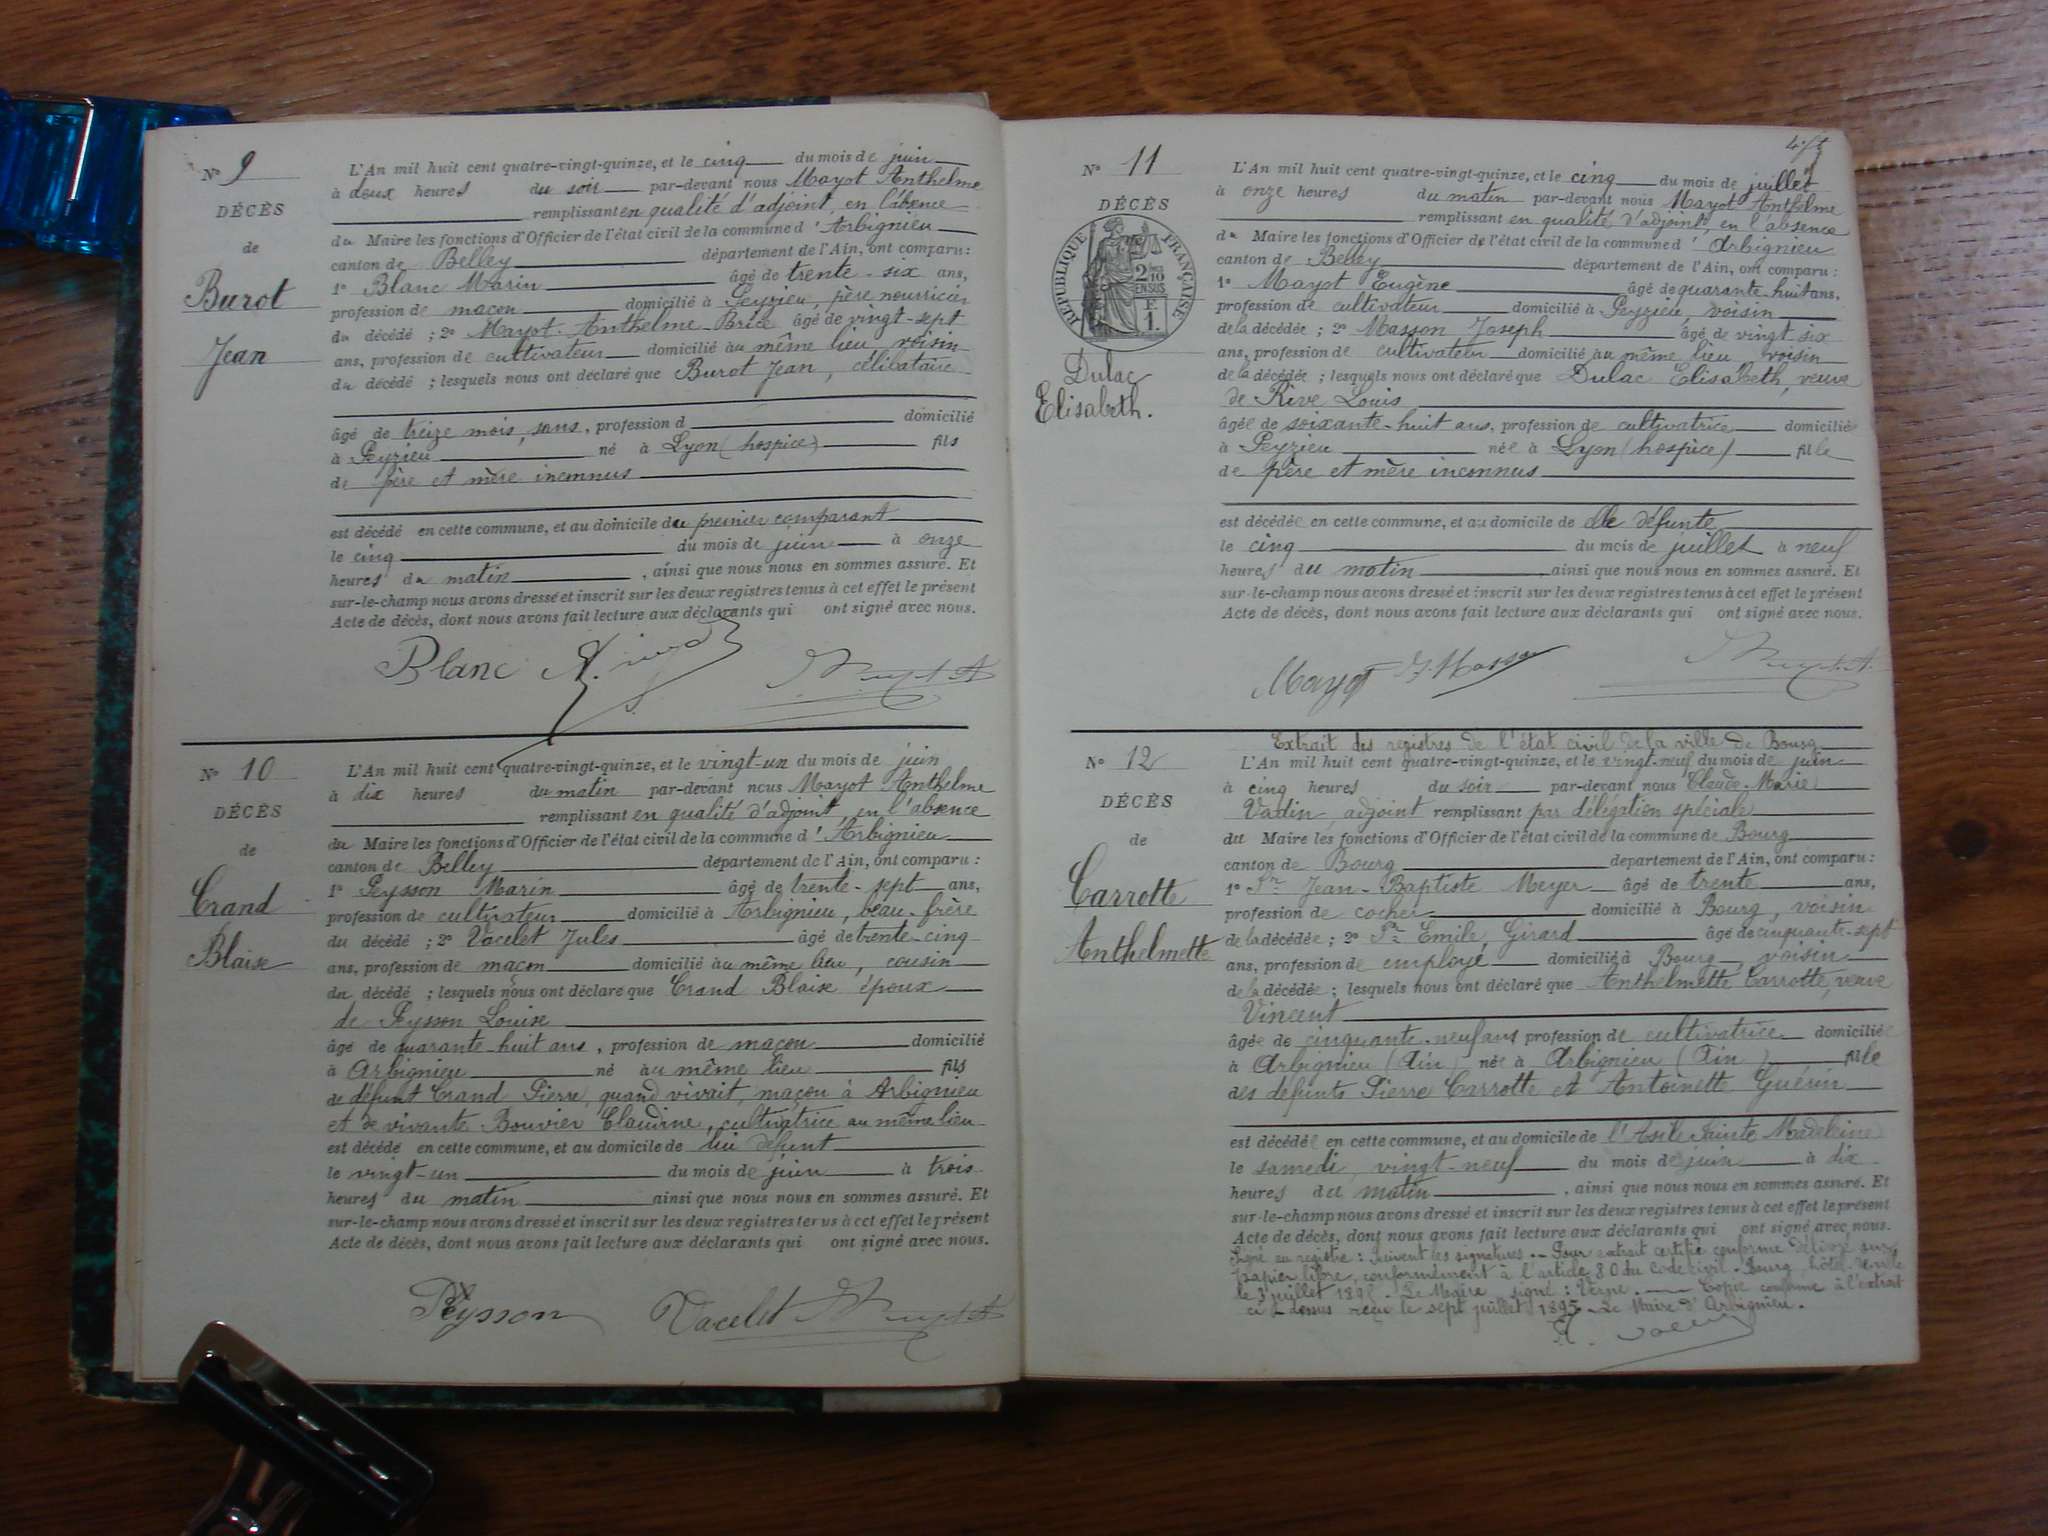 N° 9
DÉCÈS
de
Burot
Jean
L'An mil huit cent quatre-vingt-quinze, et le cinq du mois de juin
à deux heures du soir par-devant nous Mayot Anthelme
remplissant en qualité d'adjoint, en l'absence
du Maire les fonctions d'Officier de l'état civil de la commune d'Arbignieu
canton de Belley département de l'Ain, ont comparu :
1° Blanc Marin âgé de trente-six ans,
profession de maçon domicilié à Peyzieu, père nourricier
du décédé ; 2° Mayot Anthelme Brice âgé de vingt-sept
ans, profession de cultivateur domicilié au même lieu, voisin
du décédé ; lesquels nous ont déclaré que Burot Jean, célibataire
âgé de treize mois, sans, profession d domicilié
à Peyzieu né à Lyon (hospice) fils
de père et mère inconnus
est décédé en cette commune, et au domicile du premier comparant
le cinq du mois de juin à onze
heures du matin, ainsi que nous nous en sommes assuré. Et
sur-le-champ nous avons dressé et inscrit sur les deux registres tenus à cet effet le présent
Acte de décès, dont nous avons fait lecture aux déclarants qui ont signé avec nous.
Blanc
N° 10
DÉCÈS
de
Crand
Blaise
L'An mil huit cent quatre-vingt-quinze, et le vingt-un du mois de juin
à dix heures du matin par-devant nous Mayot Anthelme
remplissant en qualité d'adjoint, en l'absence
du Maire les fonctions d'Officier de l'état civil de la commune d'Arbignieu
canton de Belley département de l'Ain, ont comparu :
1° Peysson Marin âgé de trente-sept ans,
profession de cultivateur domicilié à Arbignieu, beau-frère
du décédé ; 2° Vacelet Jules âgé de trente-cinq
ans, profession de maçon domicilié au même lieu, cousin
du décédé ; lesquels nous ont déclaré que Crand Blaise époux
de Peysson Louise
âgé de quarante-huit ans, profession de maçon domicilié
à Arbignieu né au même lieu fils
de défunt Crand Pierre, quand vivait, maçon à Arbignieu
et de vivante Bouvier Claudine, cultivatrice au même lieu
est décédé en cette commune, et au domicile de lui défunt
le vingt-un du mois de juin à trois
heures du matin ainsi que nous nous en sommes assuré. Et
sur-le-champ nous avons dressé et inscrit sur les deux registres tenus à cet effet le présent
Acte de décès, dont nous avons fait lecture aux déclarants qui ont signé avec nous.
Peysson Vacelet
N° 11
DÉCÈS
RÉPUBLIQUE FRANÇAISE
2/10
EN SUS
F.
1.
Dulac
Elisabeth.
L'An mil huit cent quatre-vingt-quinze, et le cinq du mois de juillet
à onze heures du matin par-devant nous Mayot Anthelme
remplissant en qualité d'adjoint, en l'absence
du Maire les fonctions d'Officier de l'état civil de la commune d'Arbignieu
canton de Belley département de l'Ain, ont comparu :
1° Mayot Eugène âgé de quarante-huit ans,
profession de cultivateur domicilié à Peyzieu, voisin
de la décédée ; 2° Masson Joseph âgé de vingt six
ans, profession de cultivateur domicilié au même lieu voisin
de la décédée ; lesquels nous ont déclaré que Dulac Elisabeth, veuve
de Rive Louis
âgée de soixante-huit ans, profession de cultivatrice domiciliée
à Peyzieu née à Lyon (hospice) fille
de père et mère inconnus
est décédée en cette commune, et au domicile de elle défunte
le cinq du mois de juillet à neuf
heures du matin ainsi que nous nous en sommes assuré. Et
sur-le-champ nous avons dressé et inscrit sur les deux registres tenus à cet effet le présent
Acte de décès, dont nous avons fait lecture aux déclarants qui ont signé avec nous.
Mayot J. Masson
N° 12
DÉCÈS
de
Carrotte
Anthelmette
Extrait des registres de l'état civil de la ville de Bourg
L'An mil huit cent quatre-vingt-quinze, et le vingt-neuf du mois de juin
à cinq heures du soir par-devant nous Claude-Marie
Vadin, adjoint remplissant par délégation spéciale
du Maire les fonctions d'Officier de l'état civil de la commune de Bourg
canton de Bourg département de l'Ain, ont comparu :
1° Sr Jean-Baptiste Meyer âgé de trente ans,
profession de cocher domicilié à Bourg, voisin
de la décédée ; 2° Sr Emile Girard âgé de cinquante-sept
ans, profession de employé domicilié à Bourg, voisin
de la décédée ; lesquels nous ont déclaré que Anthelmette Carrotte, veuve
Vincent
âgée de cinquante-neuf ans profession de cultivatrice domiciliée
à Arbignieu (Ain) née à Arbignieu (Ain) fille
des défunts Pierre Carrotte et Antoinette Guérin
est décédée en cette commune, et au domicile de l'Asile Sainte Madeleine
le samedi, vingt-neuf du mois de juin à dix
heures du matin, ainsi que nous nous en sommes assuré. Et
sur-le-champ nous avons dressé et inscrit sur les deux registres tenus à cet effet le présent
Acte de décès, dont nous avons fait lecture aux déclarants qui ont signé avec nous.
Signé au registre : suivent les signatures. - Pour extrait certifié conforme délivré sur
papier libre, conformément à l'article 80 du code civil. Bourg, hôtel de ville
le 3 juillet 1895. - Le Maire signé : Verne. - Copie conforme à l'extrait
ci-dessus reçu le sept juillet 1895. - Le Maire d'Arbignieu.